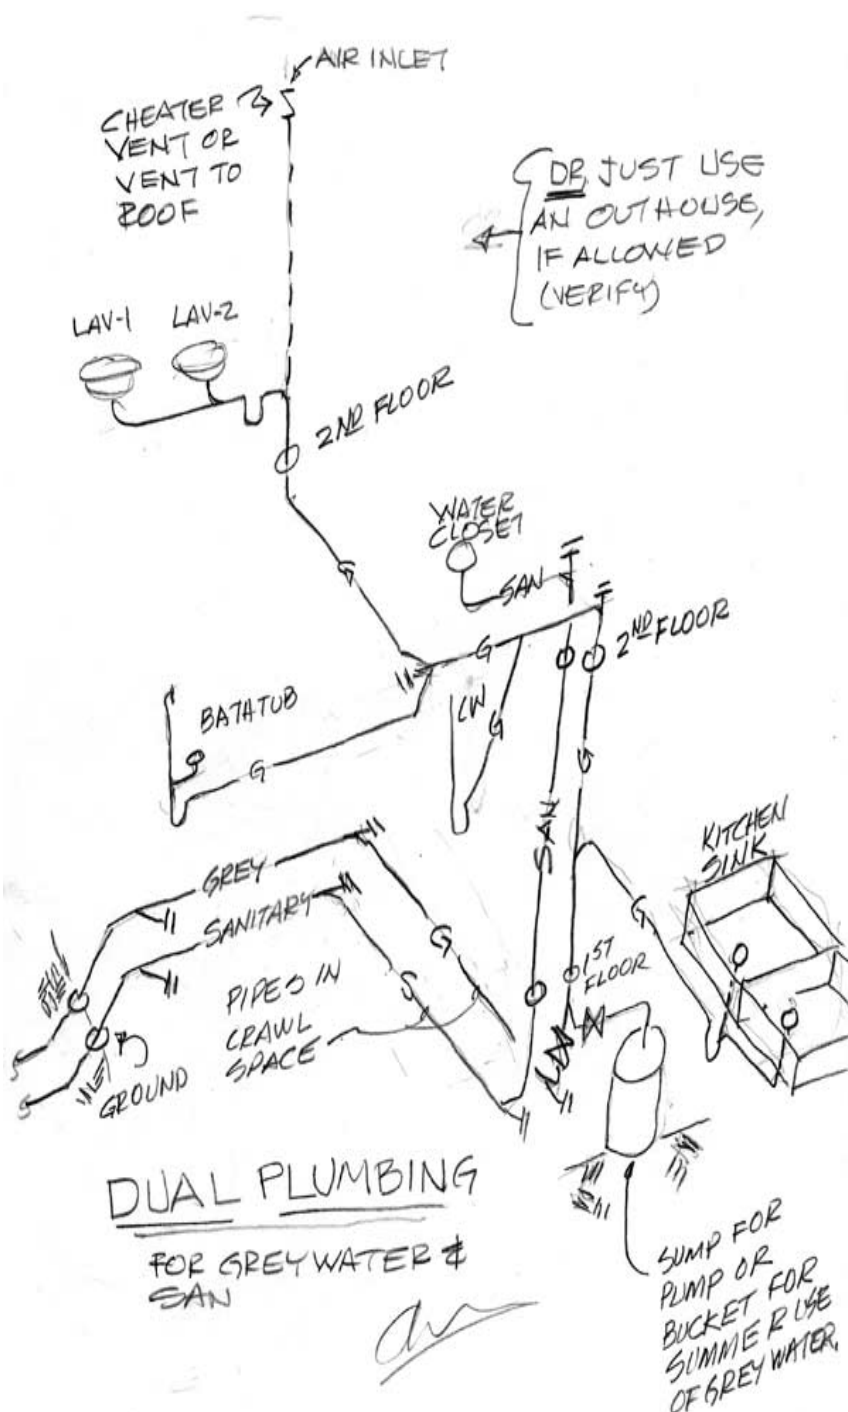 AIR INLET
CHEATER
VENT OR
VENT TO
ROOF
OR JUST USE
AN OUTHOUSE,
IF ALLOWED
(VERIFY)
LAV-1
LAV-2
2ND FLOOR
WATER
CLOSET
SAN
G
G
2ND FLOOR
BATHTUB
CW
G
G
G
SAN
KITCHEN
SINK
GREY
SANITARY
G
G
1ST
FLOOR
PIPES IN
CRAWL
SPACE
S
GROUND
S
S
DUAL PLUMBING
FOR GREYWATER &
SAN
SUMP FOR
PUMP OR
BUCKET FOR
SUMMER USE
OF GREY WATER.